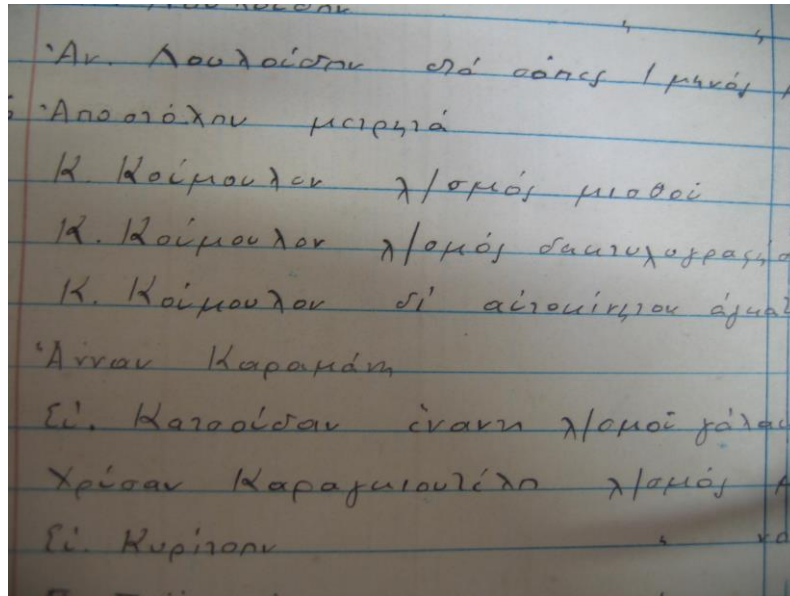 Ἀν. Λουλούδην ἀπό σόπες 1 μηνός
Ἀποστόλην μετρητά
Κ. Κοίμουλον λ/σμός μισθοῦ
Κ. Κοίμουλον λ/σμός δακτυλογραφή
Κ. Κοίμουλον δι' αὐτοκίνητον ἀγκα
Ἄνναν Καραμάνη
Εὐ. Κατσούδαν ἔναντι λ/σμοῦ γάλα
Χρύσαν Καραγκιουτέλη λ/σμός
Εὐ. Κυρίτσην